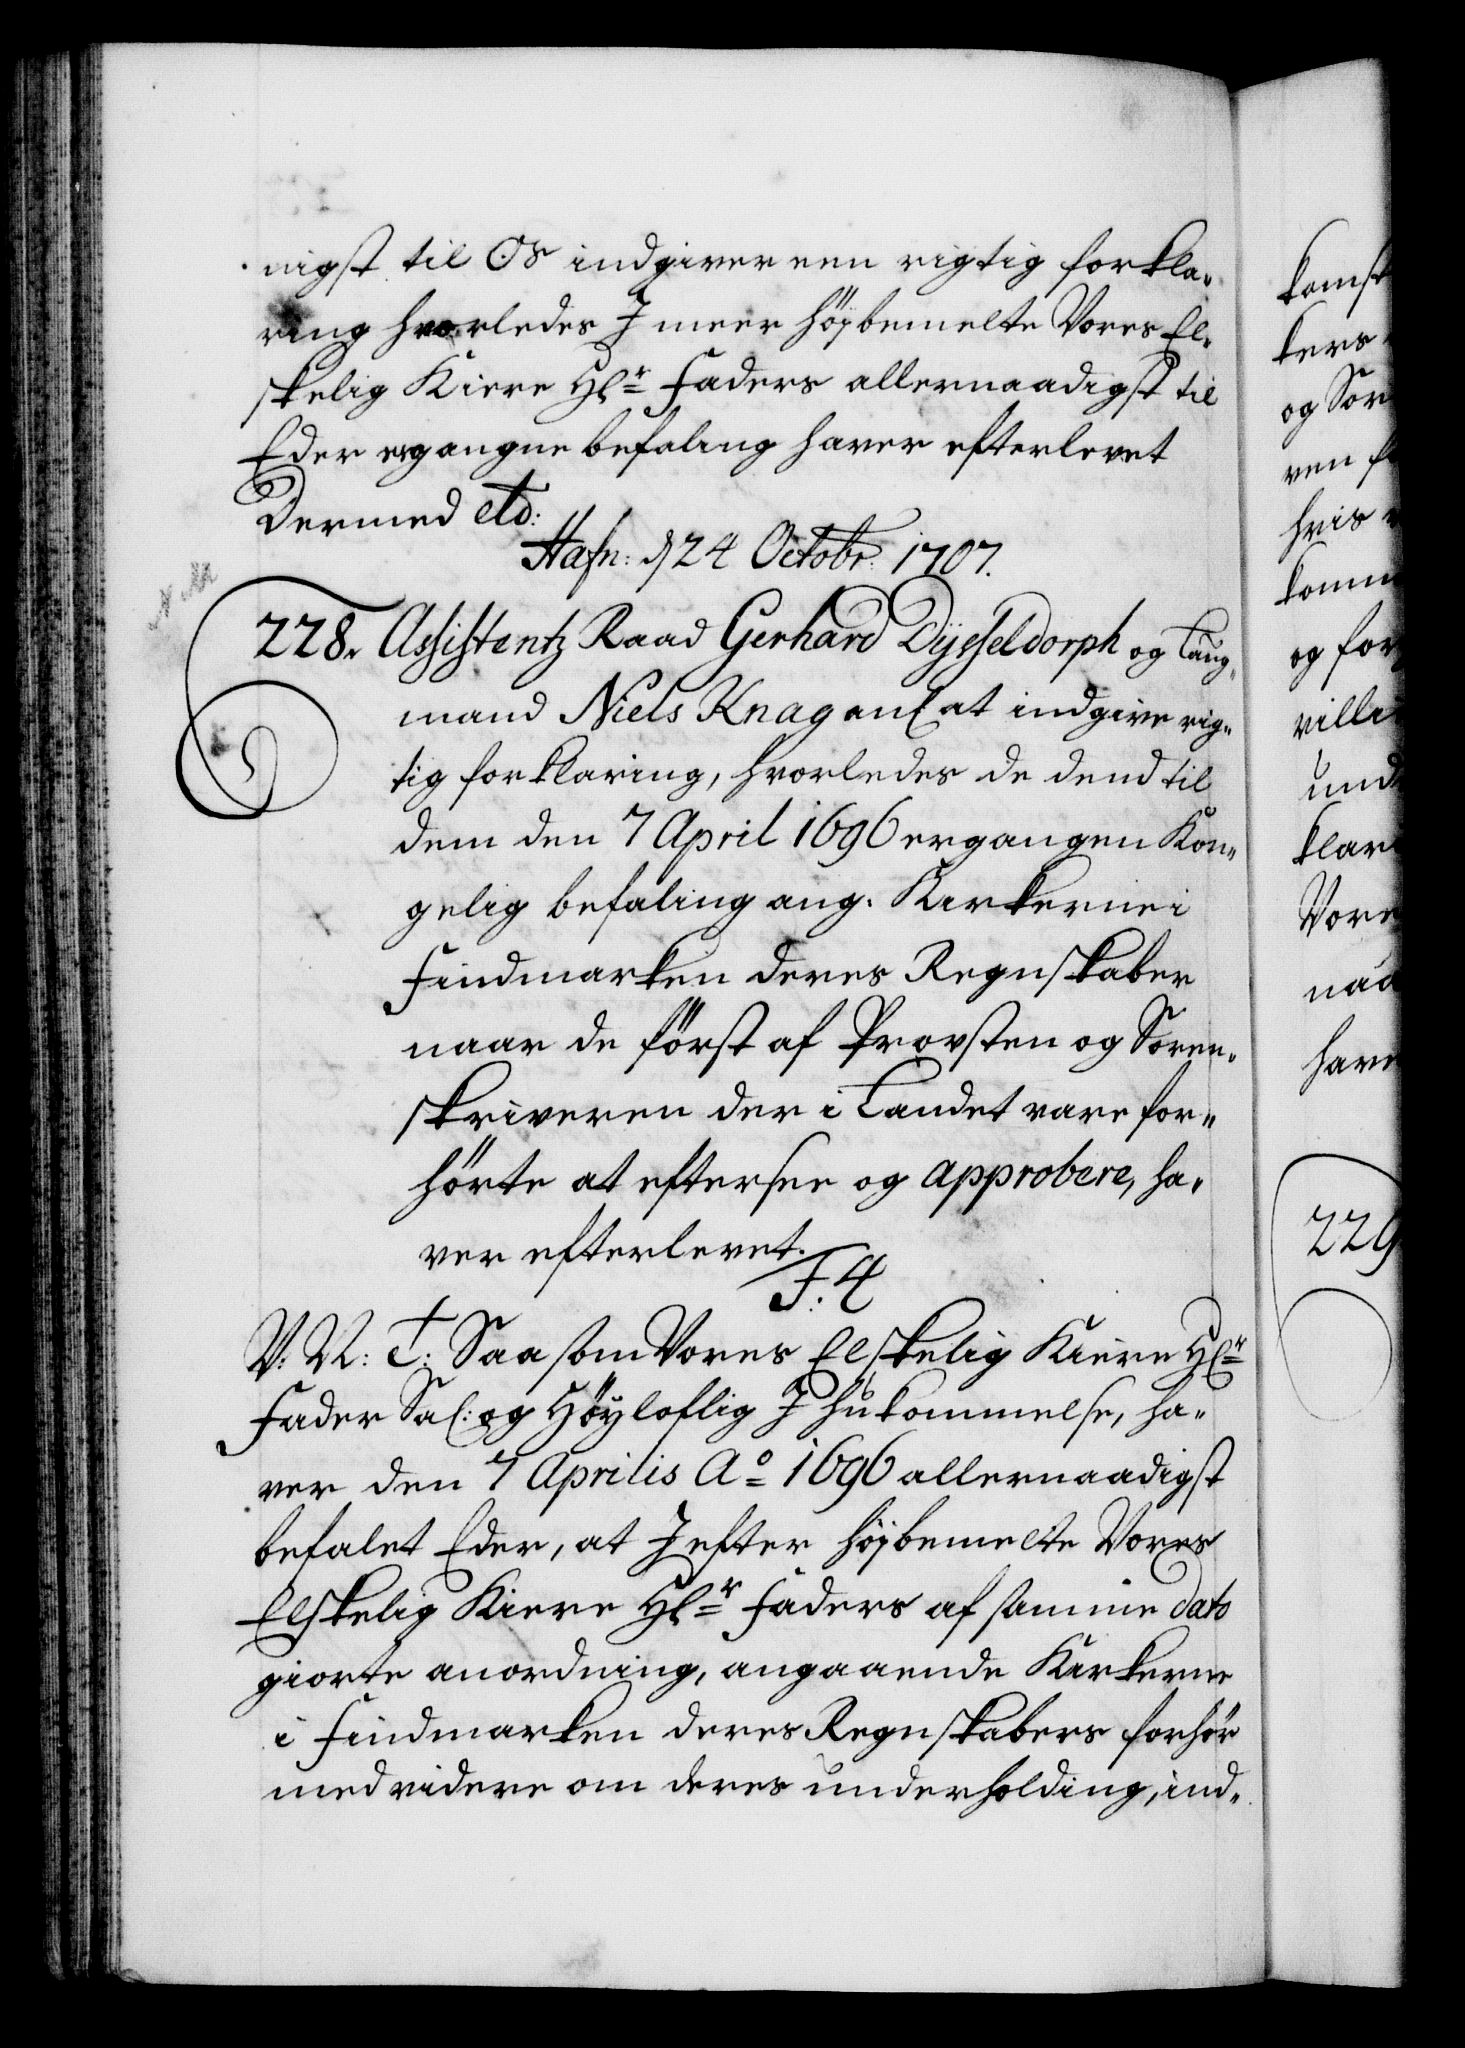 nigst til Os indgiver een rigtig forkla-
ring hvorledes I meer højbemelte Vores El-
skelig Kiere Hl.r Faders allernaadigst til
Eder ergangne befaling haver efterlevet
Dermed etc:
Hafn: d 24 Octobr: 1707.
228. Assistentz Raad Gerhard Dÿsseldorph og Laug-
mand Niels Knag anl at indgive rig-
tig forklaring, hvorledes de dend til
dem den 7 April 1696 ergangen Kon-
gelig befaling ang. Kirkerne i
Findmarken deres Regnskaber
naar de först af Provsten og Soren-
skriveren der i Landet vare for-
hörte at eftersee og approbere, ha-
ver efterlevet.
F. 4
V: N: T: Saasom Vores Elskelig Kiere Hl.r
Fader Sal: og Höyloflig Ihukommelse, ha-
ver den 7 Aprilis Ao 1696 allernaadigst
befalet Eder, at I efter høj bemelte Vores
Elskelig Kiere Hl.r Faders af samme dato
giorte anordning, angaaende Kirkerne
i Findmarken deres Regnskabers forhör
med videre om deres underholding, ind-
komst
kers
og Sor
ven
hvis
komm
og for
ville
und
klar
Vore
naa
have
229